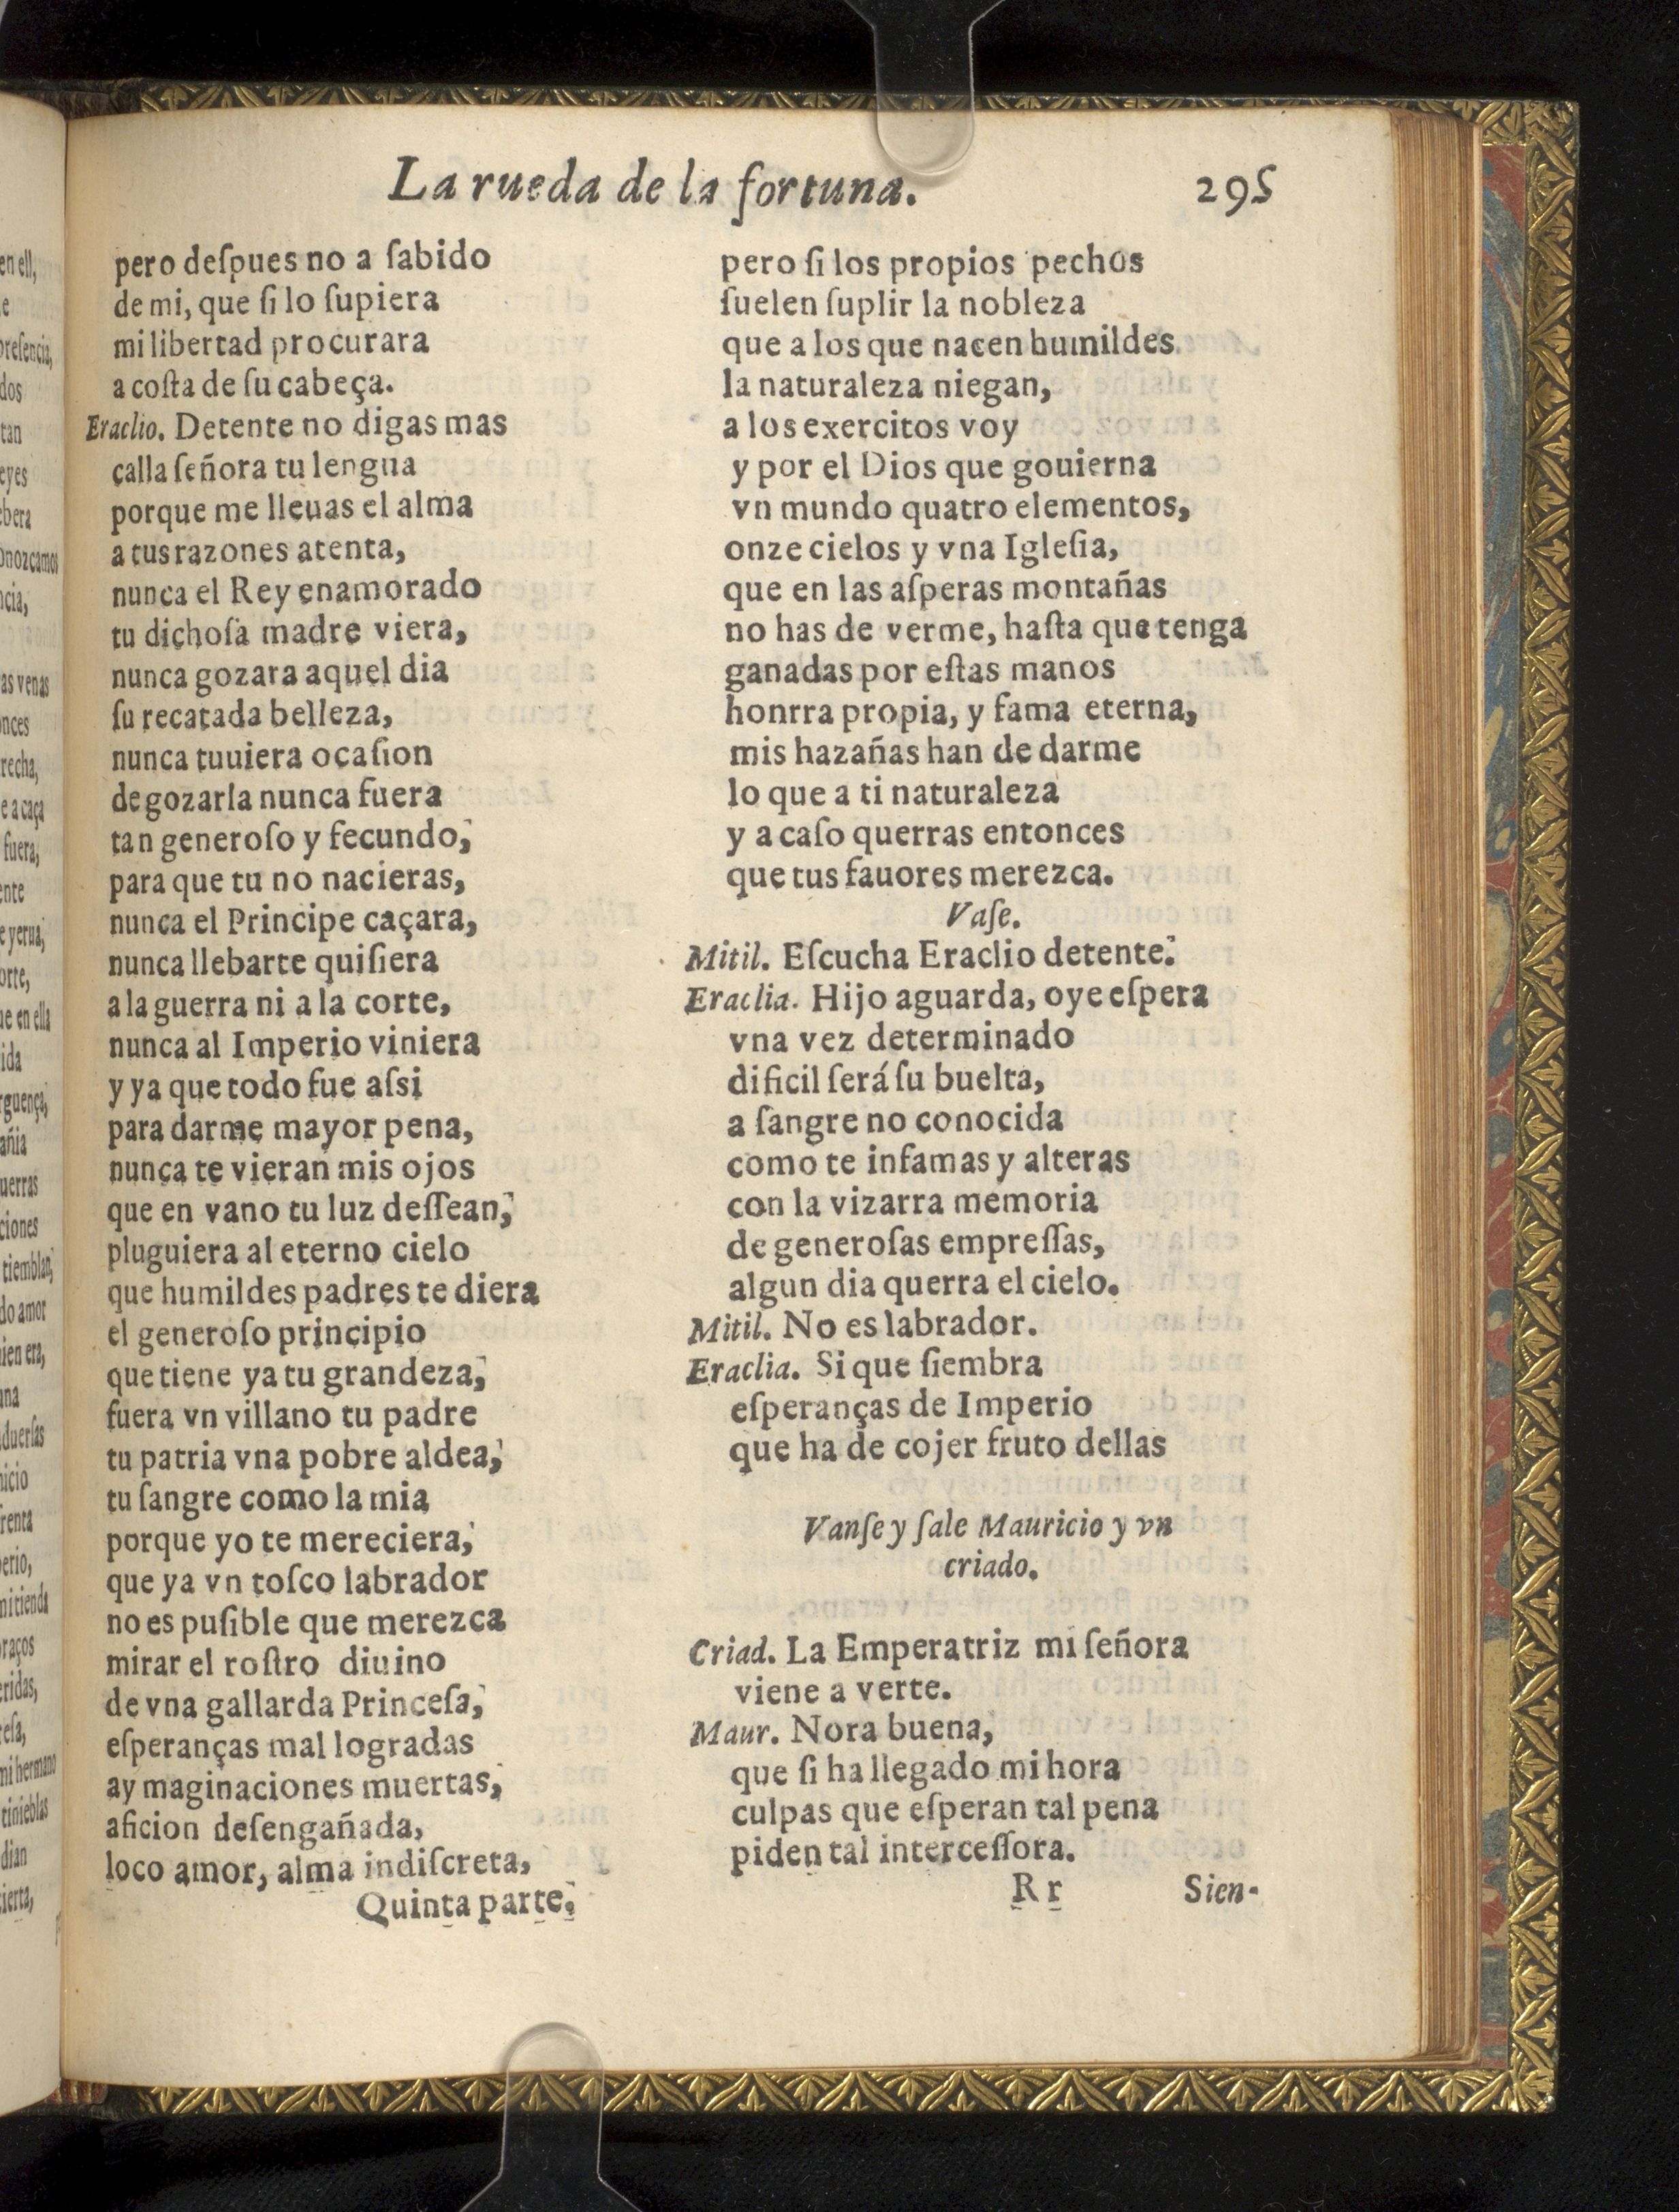 La rueda de la fortuna.
295
pero deſpues no a ſabido
de mi, que ſi lo ſupiera
mi libertad procurara
a coſta de ſu cabeça.
Eraclio. Detente no digas mas
çalla ſeñora tu lengua
porque me lleuas el alma
a tus razones atenta,
nunca el Rey enamorado
tu dichoſa madre viera,
nunca gozara aquel dia
ſu recatada belleza,
nunca tuuiera ocaſion
de gozarla nunca fuera
tan generoſo y fecundo,
para que tu no nacieras,
nunca el Principe caçara,
nunca llebarte quiſiera
a la guerra ni a la corte,
nunca al Imperio viniera
y ya que todo fue aſsi
para darme mayor pena,
nunca te vieran mis ojos
que en vano tu luz deſſean,
pluguiera al eterno cielo
que humildes padres te diera
el generoſo principio
que tiene ya tu grandeza,
fuera vn villano tu padre
tu patria vna pobre aldea,
tu ſangre como la mia
porque yo te mereciera,
que ya vn toſco labrador
no es puſible que merezca
mirar el roſtro diuino
de vna gallarda Princeſa,
eſperanças mal logradas
ay maginaciones muertas,
aficion deſengañada,
loco amor, alma indiſcreta,
Quinta parte.
pero ſi los propios pechos
ſuelen ſuplir la nobleza
que a los que nacen humildes
la naturaleza niegan,
a los exercitos voy
y por el Dios que gouierna
vn mundo quatro elementos,
onze cielos y vna Igleſia,
que en las aſperas montañas
no has de verme, haſta que tenga
ganadas por eſtas manos
honrra propia, y fama eterna,
mis hazañas han de darme
lo que a ti naturaleza
y a caſo querras entonces
que tus fauores merezca.
Vaſe.
Mitil. Eſcucha Eraclio detente.
Eraclia. Hijo aguarda, oye eſpera
vna vez determinado
dificil ſerá ſu buelta,
a ſangre no conocida
como te infamas y alteras
con la vizarra memoria
de generoſas empreſſas,
algun dia querra el cielo.
Mitil. No es labrador.
Eraclia. Si que ſiembra
eſperanças de Imperio
que ha de cojer fruto dellas
Vanſe y ſale Mauricio y vn
criado.
Criad. La Emperatriz mi ſeñora
viene a verte.
Maur. Nora buena,
que ſi ha llegado mi hora
culpas que eſperan tal pena
piden tal interceſſora.
Rr
Sien-